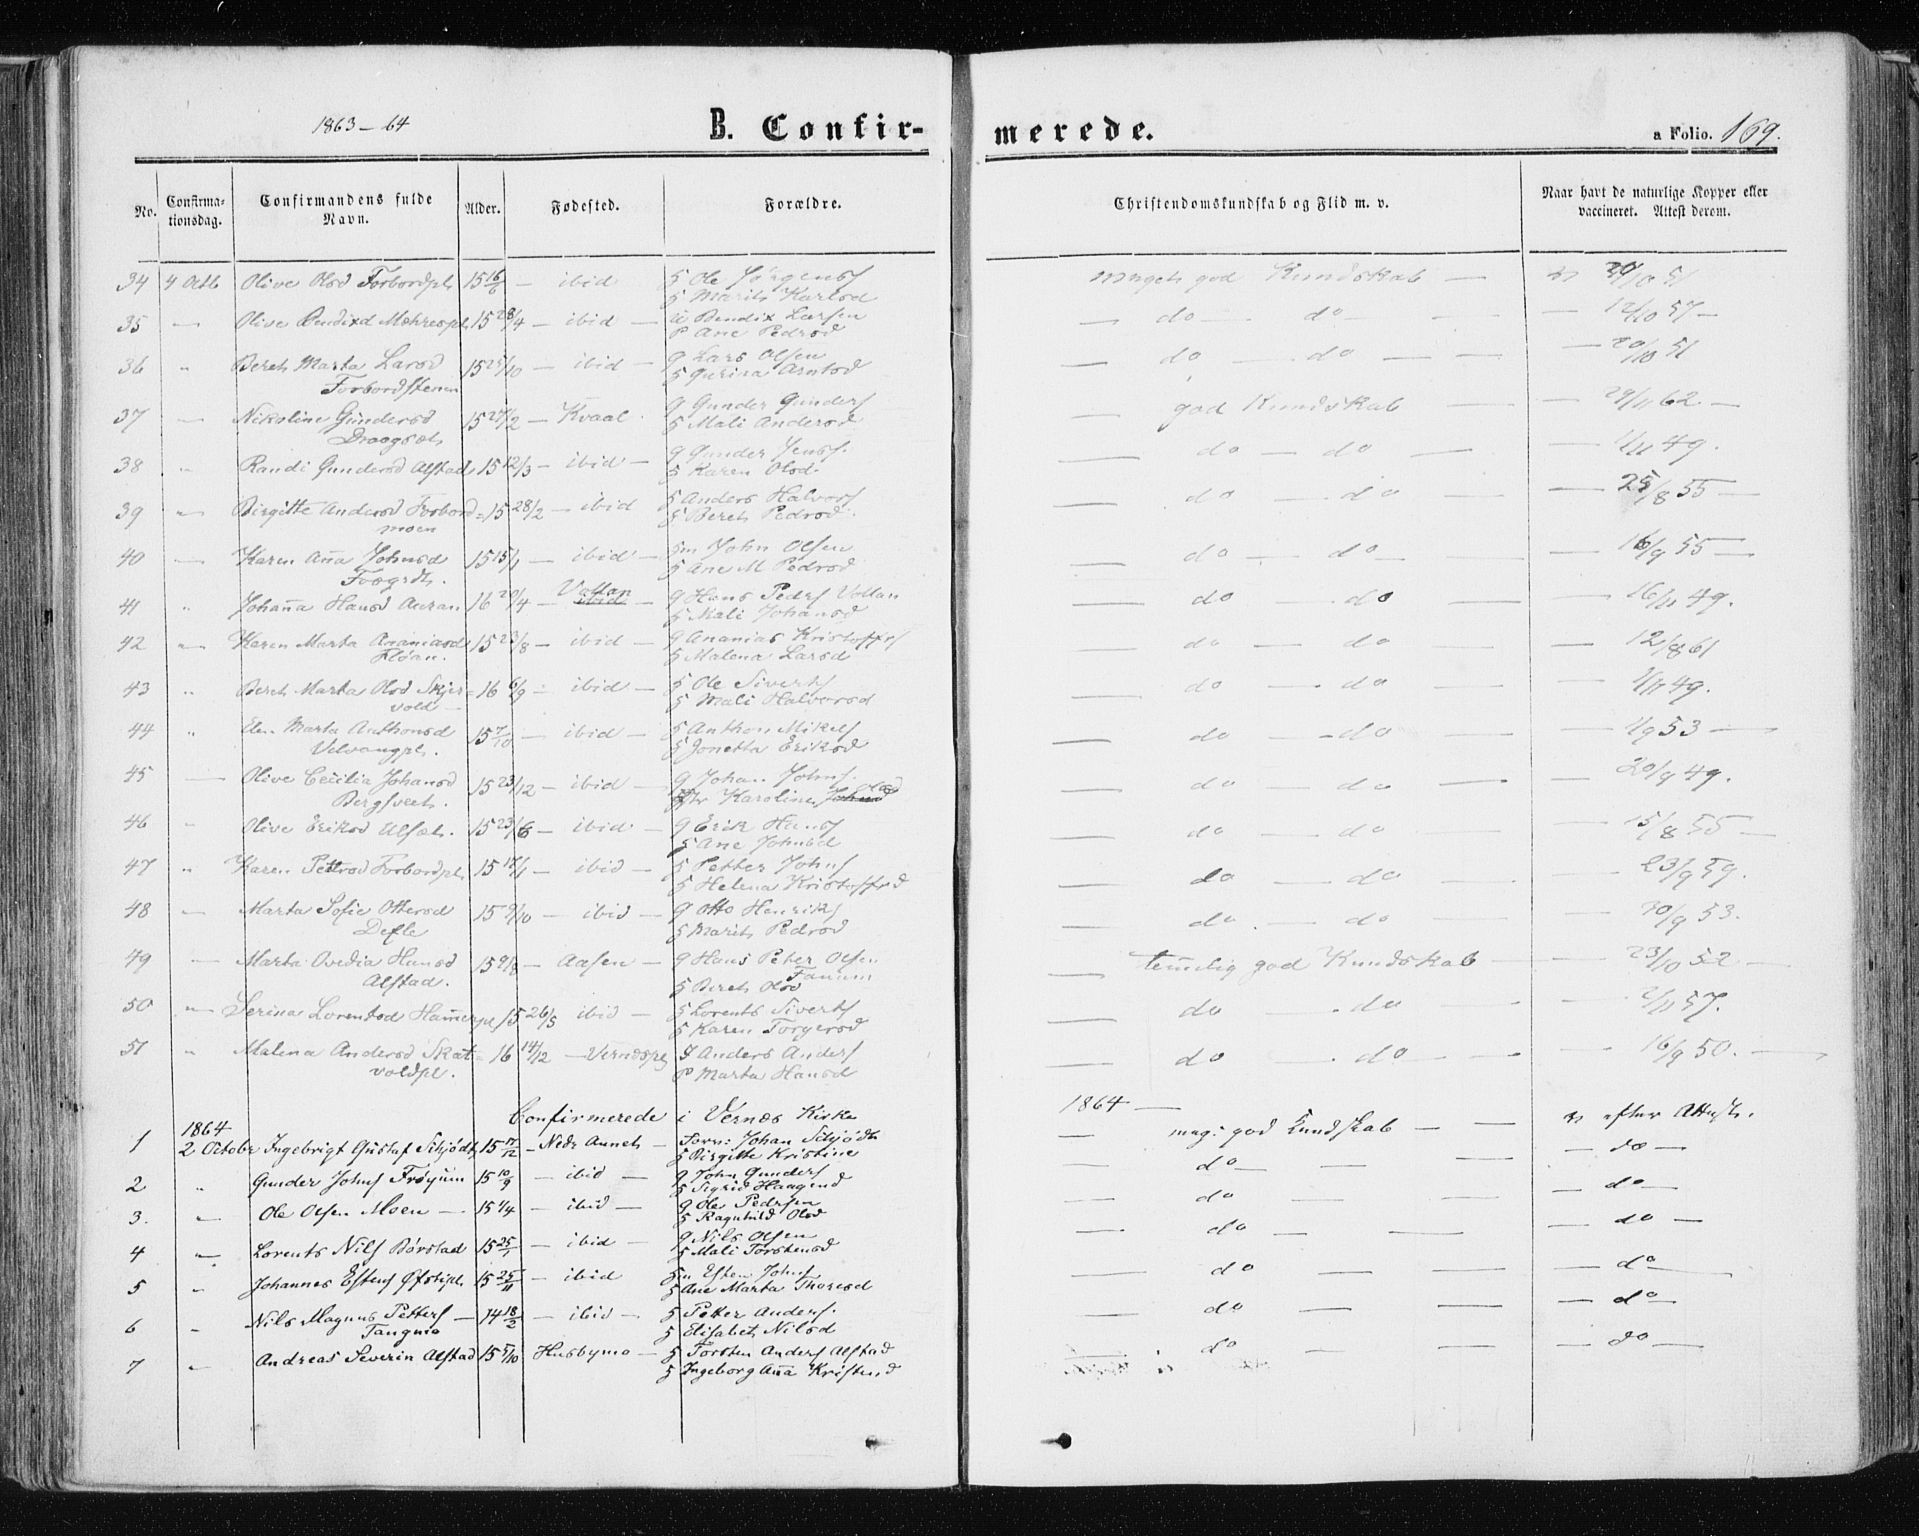 1863-64 B. Confirmerede. a Folio. 169.
No. Confirmationsdag. Confirmandens fulde Navn. Alder. Fødested. Forældre. Christendomskundskab og Flid m. v. Naar havt de naturlige Kopper eller vaccineret. Attest derom.
34 4 Octb Olive Olsd Forbordpl 15 16/6 — ibid G Ole Jørgens G Marith Karlsd meget god Kundskab — v 20/10 51
35 — Olive Bendixd Mæhrespl 15 28/4 — ibid — Bendix Larsen P Ane Pedrsd — do — do — 12/10 57 —
36 " Bereth Marta Larsd Forbordstenen — ibid — g Lars Olsen G Gurina Arntsd — do — do — 20/10 51
37 " Nikoline Gundersd Draagsæth 15 27/2 — Kvaal g Gunder Gunders G Mali Andersd — god Kundskab — 29/11 62 —
38 " Randi Gundersd Alstad 15 12/3 — ibid — g Gunder Jens G Karen Olsd — do — do — 1/11 49.
39 " Birgitte Andersd Forbordmoen 15 28/2 — ibid G Anders Halvors G Bereth Pedrsd — do — do — 25/8 55 —
40 — Karen Aña Johnsd 15 15/1 — ibid — Gm John Olsen G Ane M Pedrsd — do — do — 16/9 55 —
41 " Johaña Hansd Auran 16 20/4 — Vollan g Hans Peders Vollan G Mali Johansd — do — do — 16/11 49.
42 " Karen Marta Ananiasd Fløan. 15 23/8 — ibid — g Ananias Kristoffers G Malena Larsd — do — do — 12/8 61
43 " Bereth Marta Olsd Skjervold — 16 6/9 — ibid — G Ole Siverts G Mali Halvorsd — do — do — 1/11 49.
44 " Elen Marta Anthonsd Velvangpl. 15 7/10 — ibid — G Anthon Mikels G Jonetta Eriksd — do — do — 1/9 53 —
45 — Olive Cecilia Johansd Bergsveet. 15 23/12 — ibid — g Johan Johns. Karoline Olsd — do — do — 20/9 49.
46 " Olive Eriksd Alsæth. 15 23/6 — ibid — g Erik Hans G Ane Johnsd — do — do — 15/8 55 —
47 " Karen Pettrsd Forbordpl 15 18/1 — ibid — G Petter Johns G Helena Kristoffrsd — do — do — 23/9 59.
48 — Marta Sofie Ottersd Defle 15 9/10 — ibid — g Otto Henriks G Marith Pedrsd — do — do — 30/9 53.
49 — Marta Ovedia Hansd Alstad. 15 9/8 — Aasen — g Hans Peter Olsen Fanum G Bereth Olsd — temelig god Kundskab — 23/10 52 —
50 " Serina Lorentsd Hamerpl 15 26/5 ibid — G Lorents Siverts G Karen Torgersd — do — do — 2/11 57.
51 " Malena Andersd Skatvoldpl. 16 14/12 — Vernæspl Anders Anders P Marta Hansd — do — do — 16/9 50. —
Confirmerede i Vernæs Kirke 1864 —
1 1864 2 Octobr Ingebrigt Gustaf Schjødt, 15 17/12 — Nedr Auneth — Forv: Johan Schjødt G Birgitte Kristine — meg: god Kundskab — — v efter Attest.
2 " Gunder Johns Frøyum 15 10/9 — ibid — g John Gunders G Sigrid Haagensd — do — — — do —
3. " Ole Olsen Moen — 15 1/4 — ibid — g Ole Pedrsen G Ragnhild Olsd — do — — — do —
4 " Lorents Nils Børstad 15 25/1 — ibid — g Nils Olsen G Mali Torstensd — do — — — do —
5 " Johannes Estens Øfstipl. 15 25/11 — ibid Gm Esten Johns G Ane Marta Thoresd — do — — — do —
6 " Nils Magnus Petters — Tangmo 14 18/2 — ibid — G Petter Anders. G Elisabeth Nilsd — do — — — do —
7 " Andreas Severin Alstad 15 5/10 Husbymo — G Torsten Anders Alstad G Ingeborg Aña Kristensd — do — — — do —